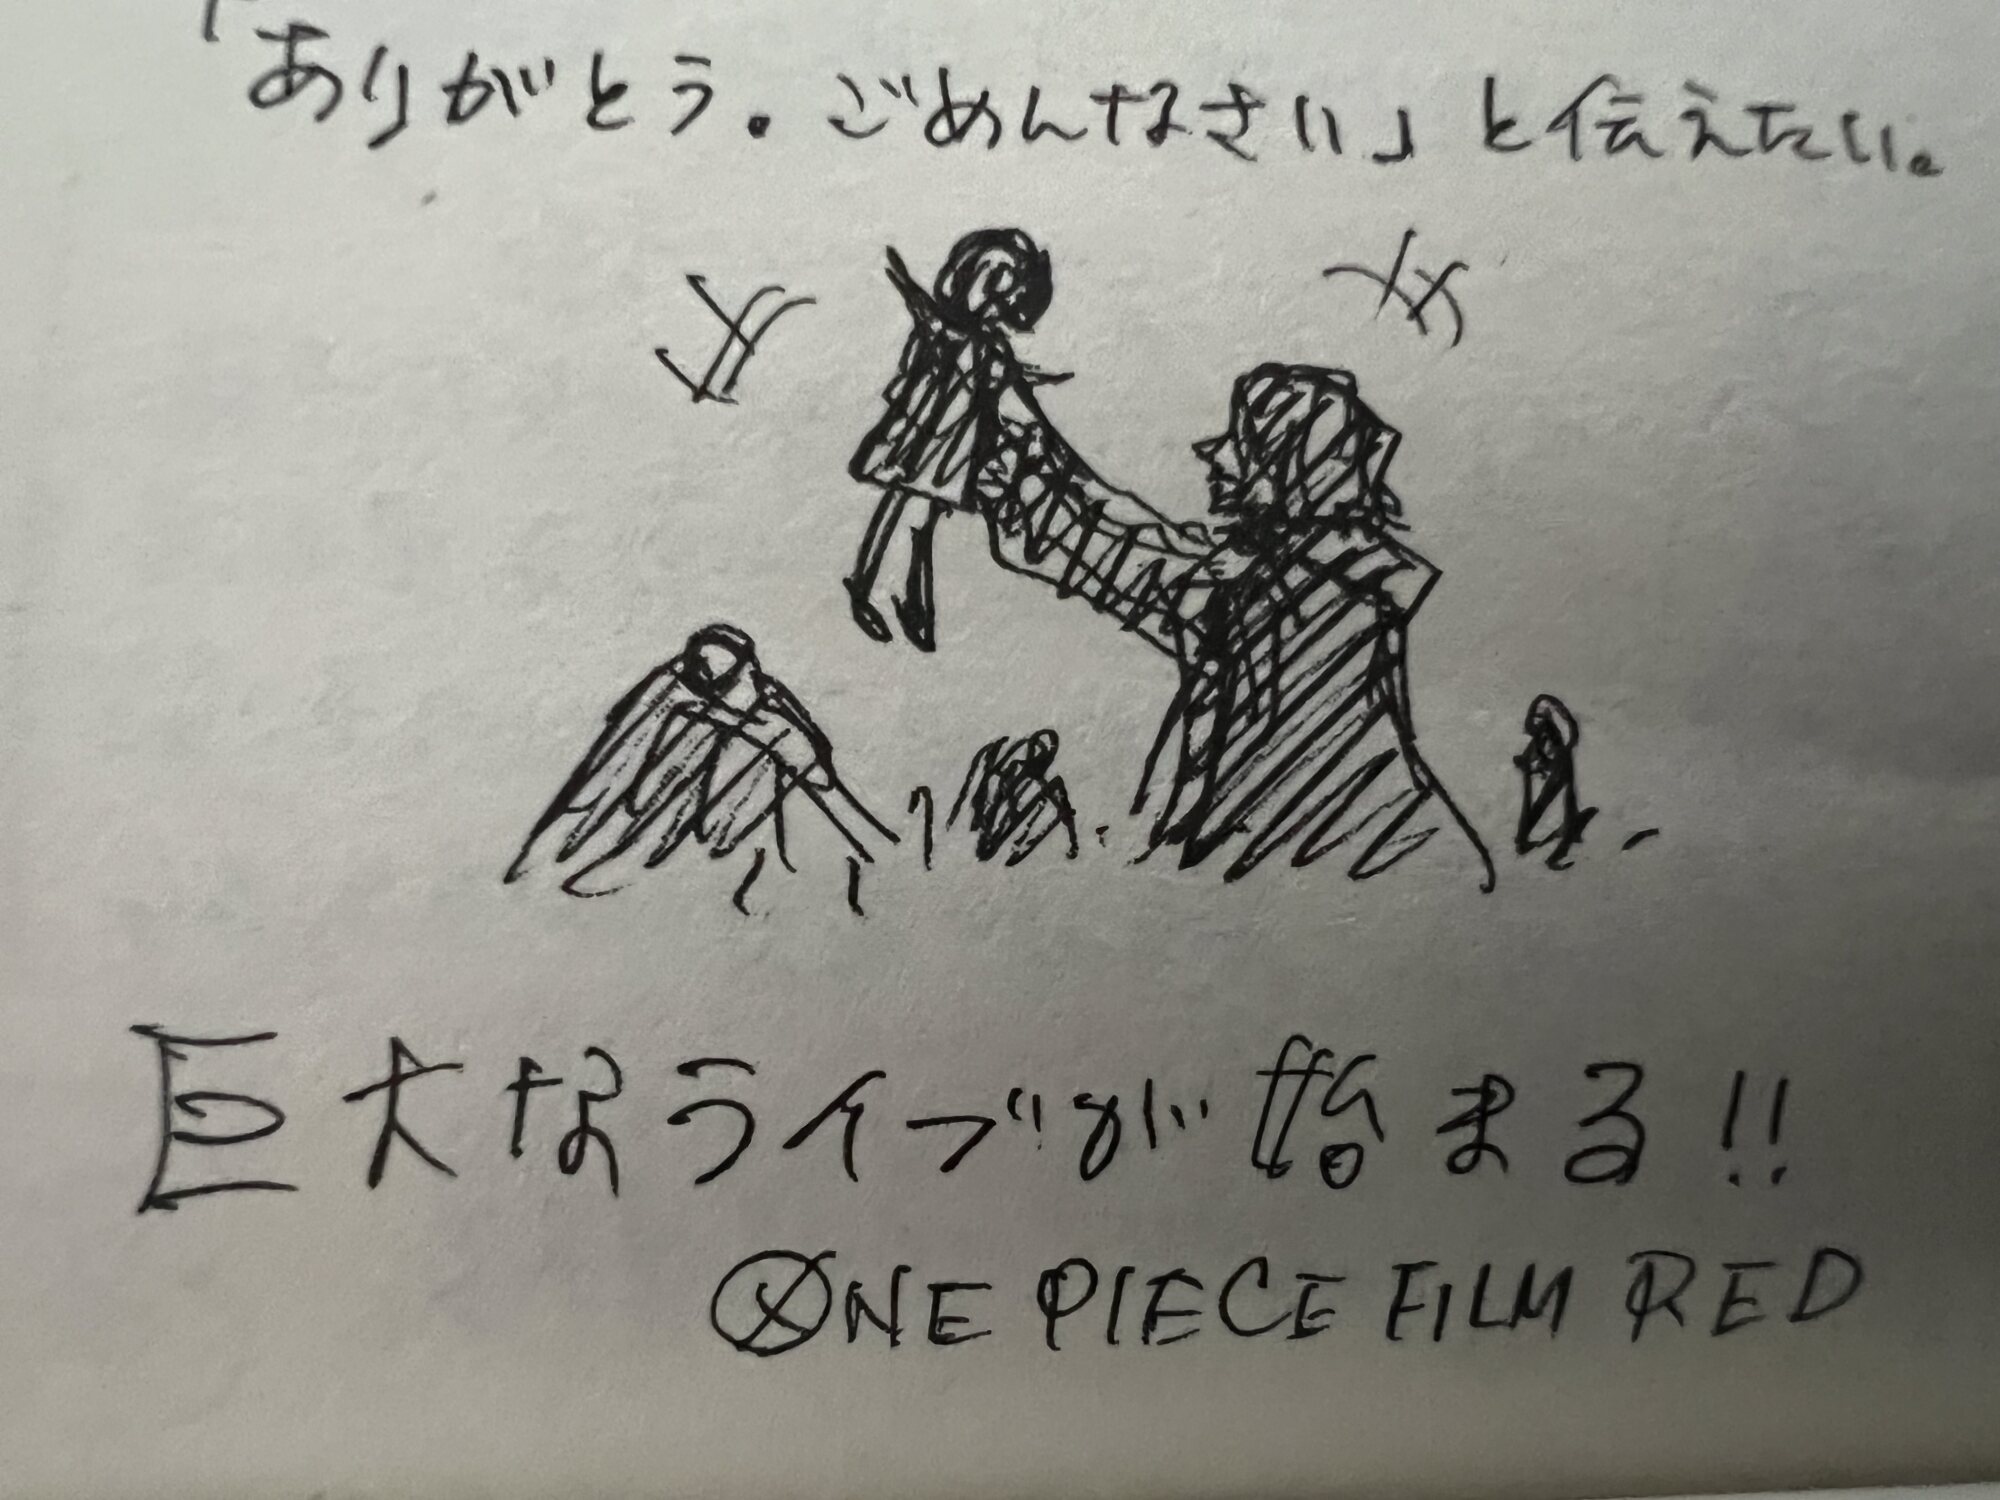 「ありがとう。ごめんなさい」と伝えたい。
巨大なライブが始まる!!
ONE PIECE FILM RED